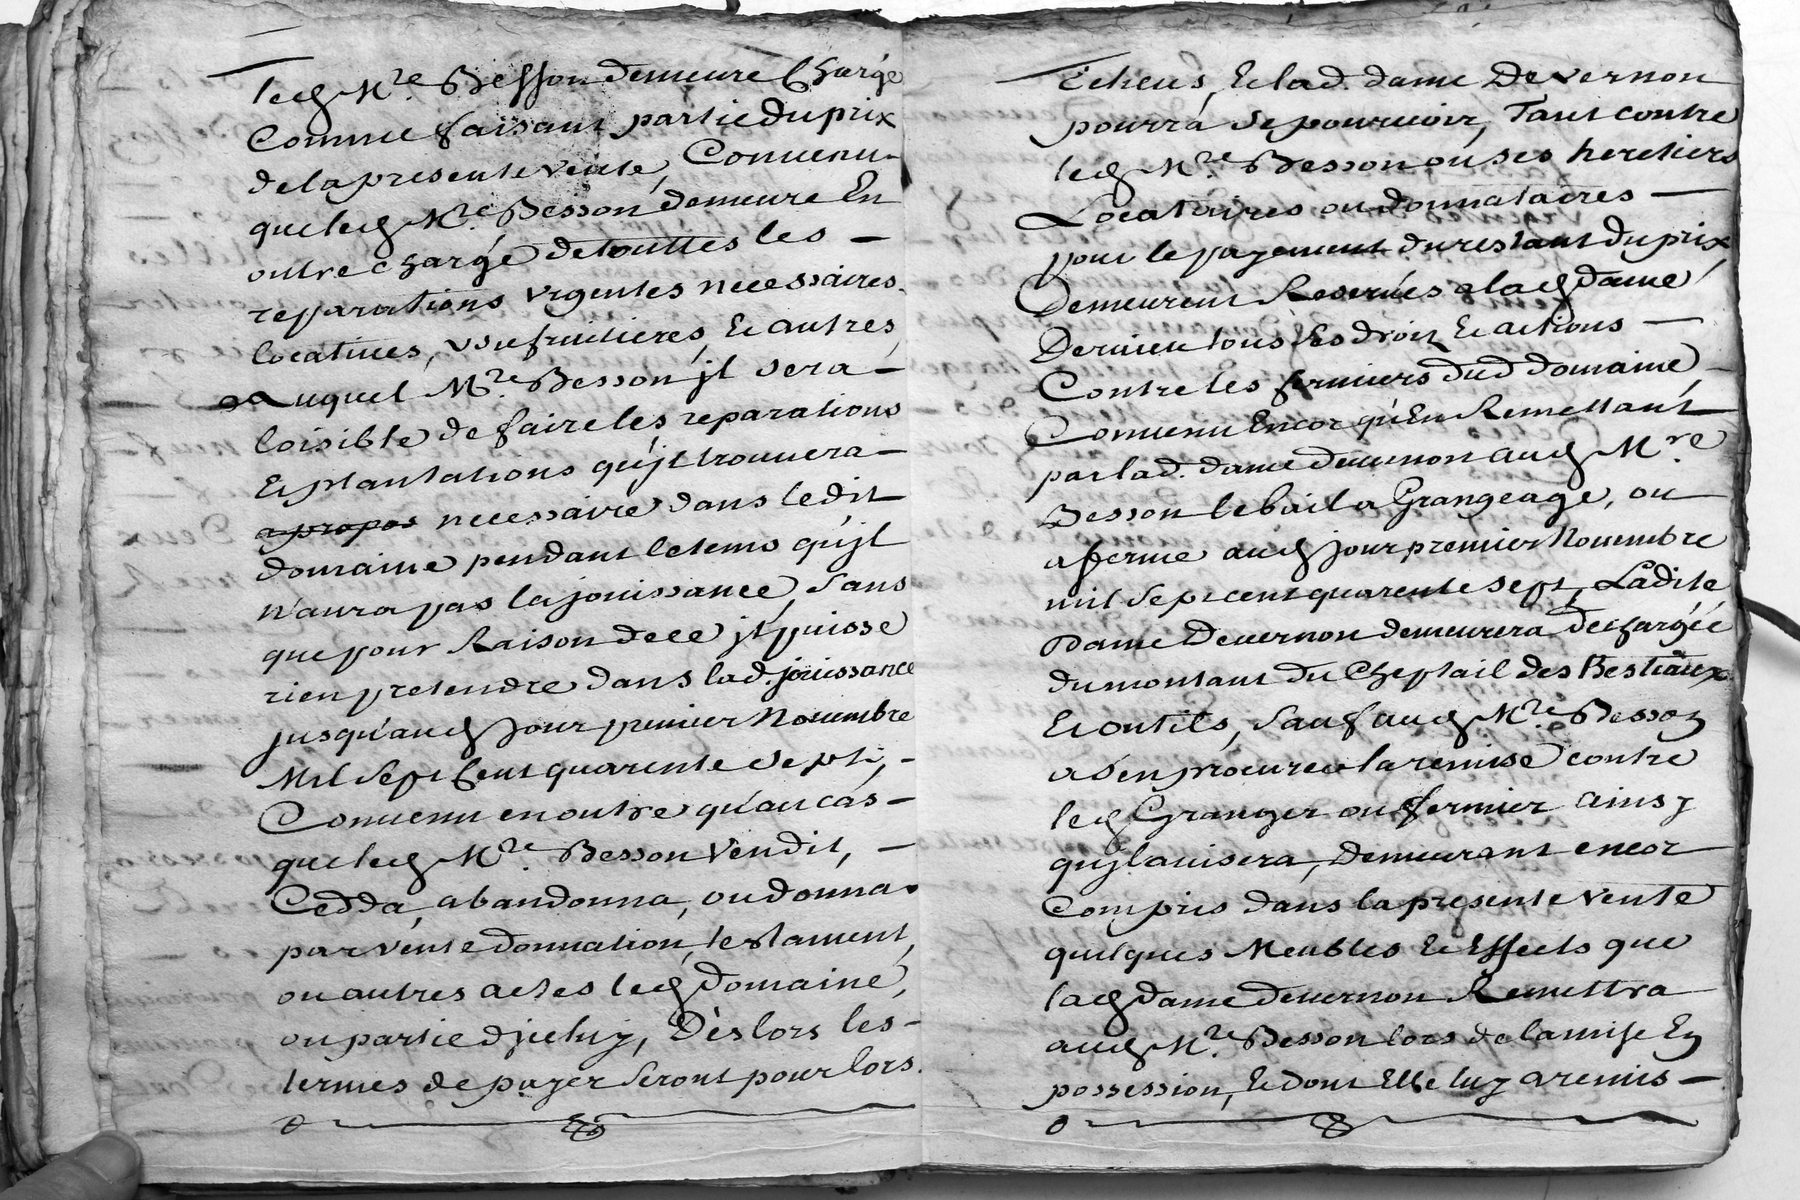 led Mre Besson demeure Chargé
Comme faisant partie du prix
de la presente vente, Convenu
que led Mre Besson demeure En
outre chargé de touttes les
reparations urgentes necessaires
locatives, usufruitieres, Et autres,
auquel Mre Besson jl sera
loisible de faire les reparations
Et plantations qu'jl trouvera
apropos necessaire dans ledit
domaine pendant le tems qu'jl
n'aura pas la jouissance, sans
que pour Raison de ce jl puisse
rien pretendre dans lad. jouissance
jusqu'aud jour premier Novembre
Mil sept Cent quarente sept,
Convenu en outre qu'au cas
que led Mre Besson Vendit,
Cedda, abandonna, ou donna
par vente donnation, testament,
ou autres actes led domaine,
ou partie d'jceluy, Dès lors les
termes de payer seront pour lors
Echeus, Et lad. dame De vernon
pourra se pourvoir, Tant contre
led Mre Besson ou ses heretiers
Locatoires ou donnataires
pour le payement du restant du prix,
Demeurent Reservés a lad dame
Dernieu tous ses droit Et actions
Contre les fermiers dud domaine,
Convenu Encor qu'En Remettant
par lad. dame devernon aud Mre
Besson le bail a Grangeage, ou
a ferme aud jour premier Novembre
mil sept cent quarente sept, Ladite
Dame Devernon demeurera Dechargée
du montant du Cheptail des Bestiaux
Et outils, sauf aud Mre Besson
a s'en procurer la remise contre
led Granger ou fermier ainsy
qu'jl avisera, Demeurant encor
Compris dans la presente vente
quelques Meubles Et Effects que
lad dame devernon Remettra
aud Mre Besson lors de la mise En
possession, Et dont Elle luy a remis